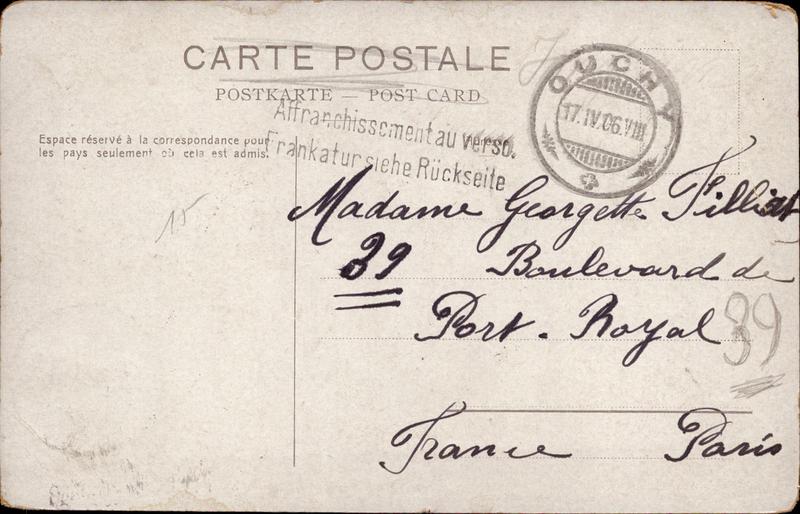 CARTE POSTALE
POSTKARTE — POST CARD
OUCHY
17.IV.06.VIII
Affranchissement au verso.
Frankatur siehe Rückseite
Espace réservé à la correspondance pour
les pays seulement où cela est admis.
15
Madame Georgette Filliat
39 Boulevard de
Port-Royal
39
France Paris